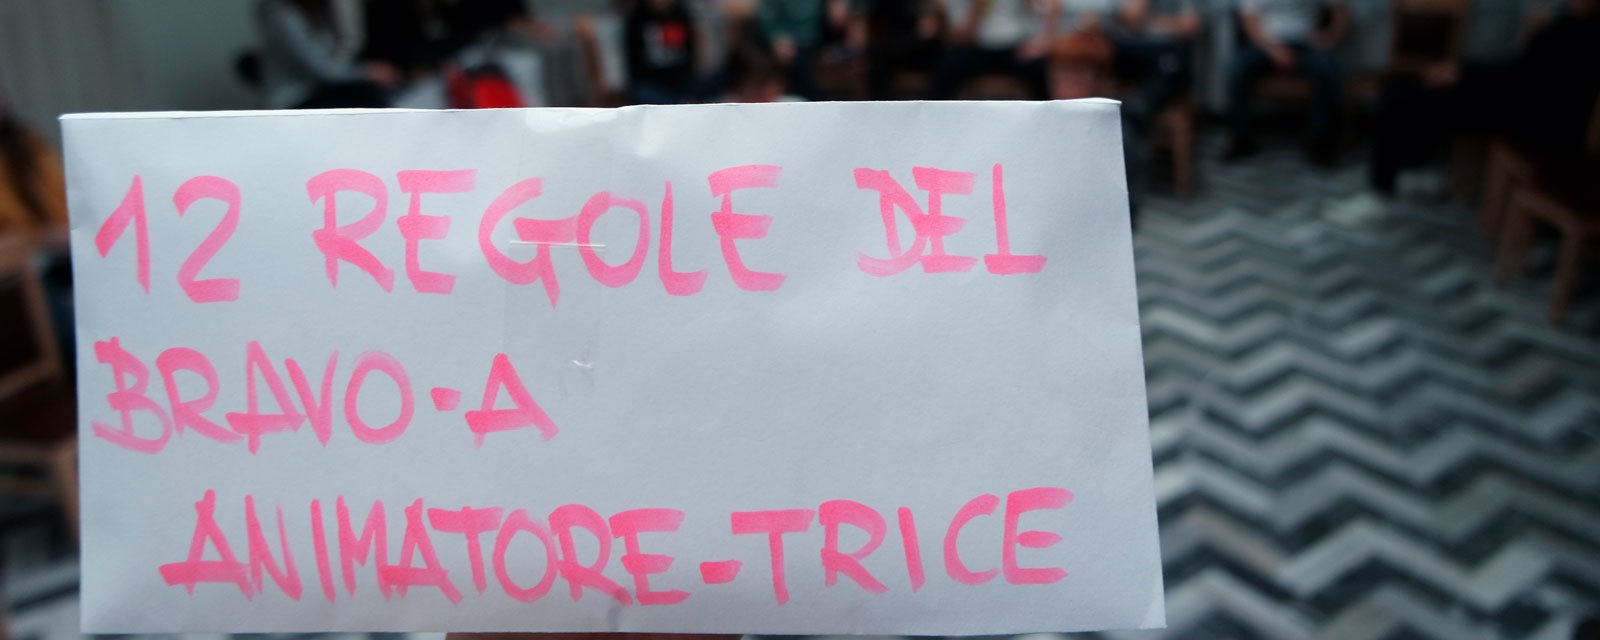 12 REGOLE DEL
BRAVO-A
ANIMATORE-TRICE